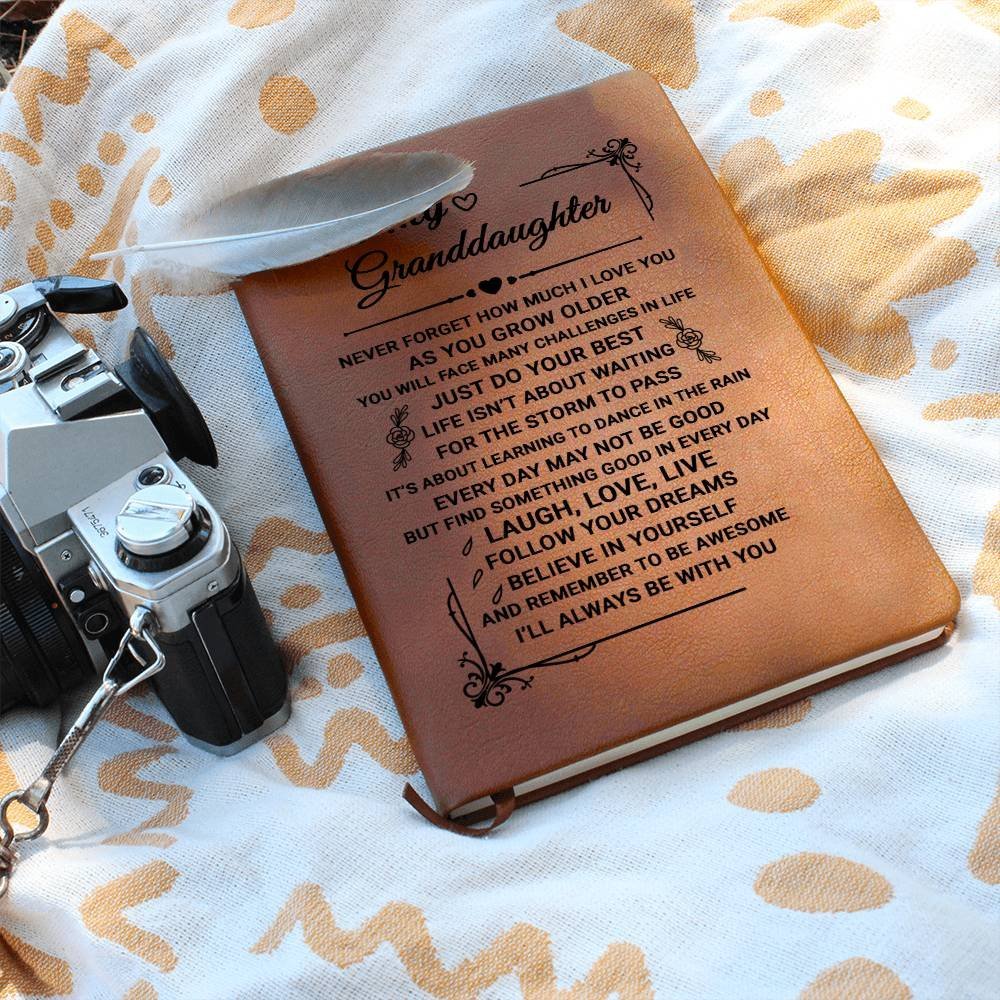 Granddaughter
NEVER FORGET HOW MUCH I LOVE YOU
AS YOU GROW OLDER
YOU WILL FACE MANY CHALLENGES IN LIFE
JUST DO YOUR BEST
LIFE ISN'T ABOUT WAITING
FOR THE STORM TO PASS
IT'S ABOUT LEARNING TO DANCE IN THE RAIN
EVERY DAY MAY NOT BE GOOD
BUT FIND SOMETHING GOOD IN EVERY DAY
LAUGH, LOVE, LIVE
FOLLOW YOUR DREAMS
BELIEVE IN YOURSELF
AND REMEMBER TO BE AWESOME
I'LL ALWAYS BE WITH YOU